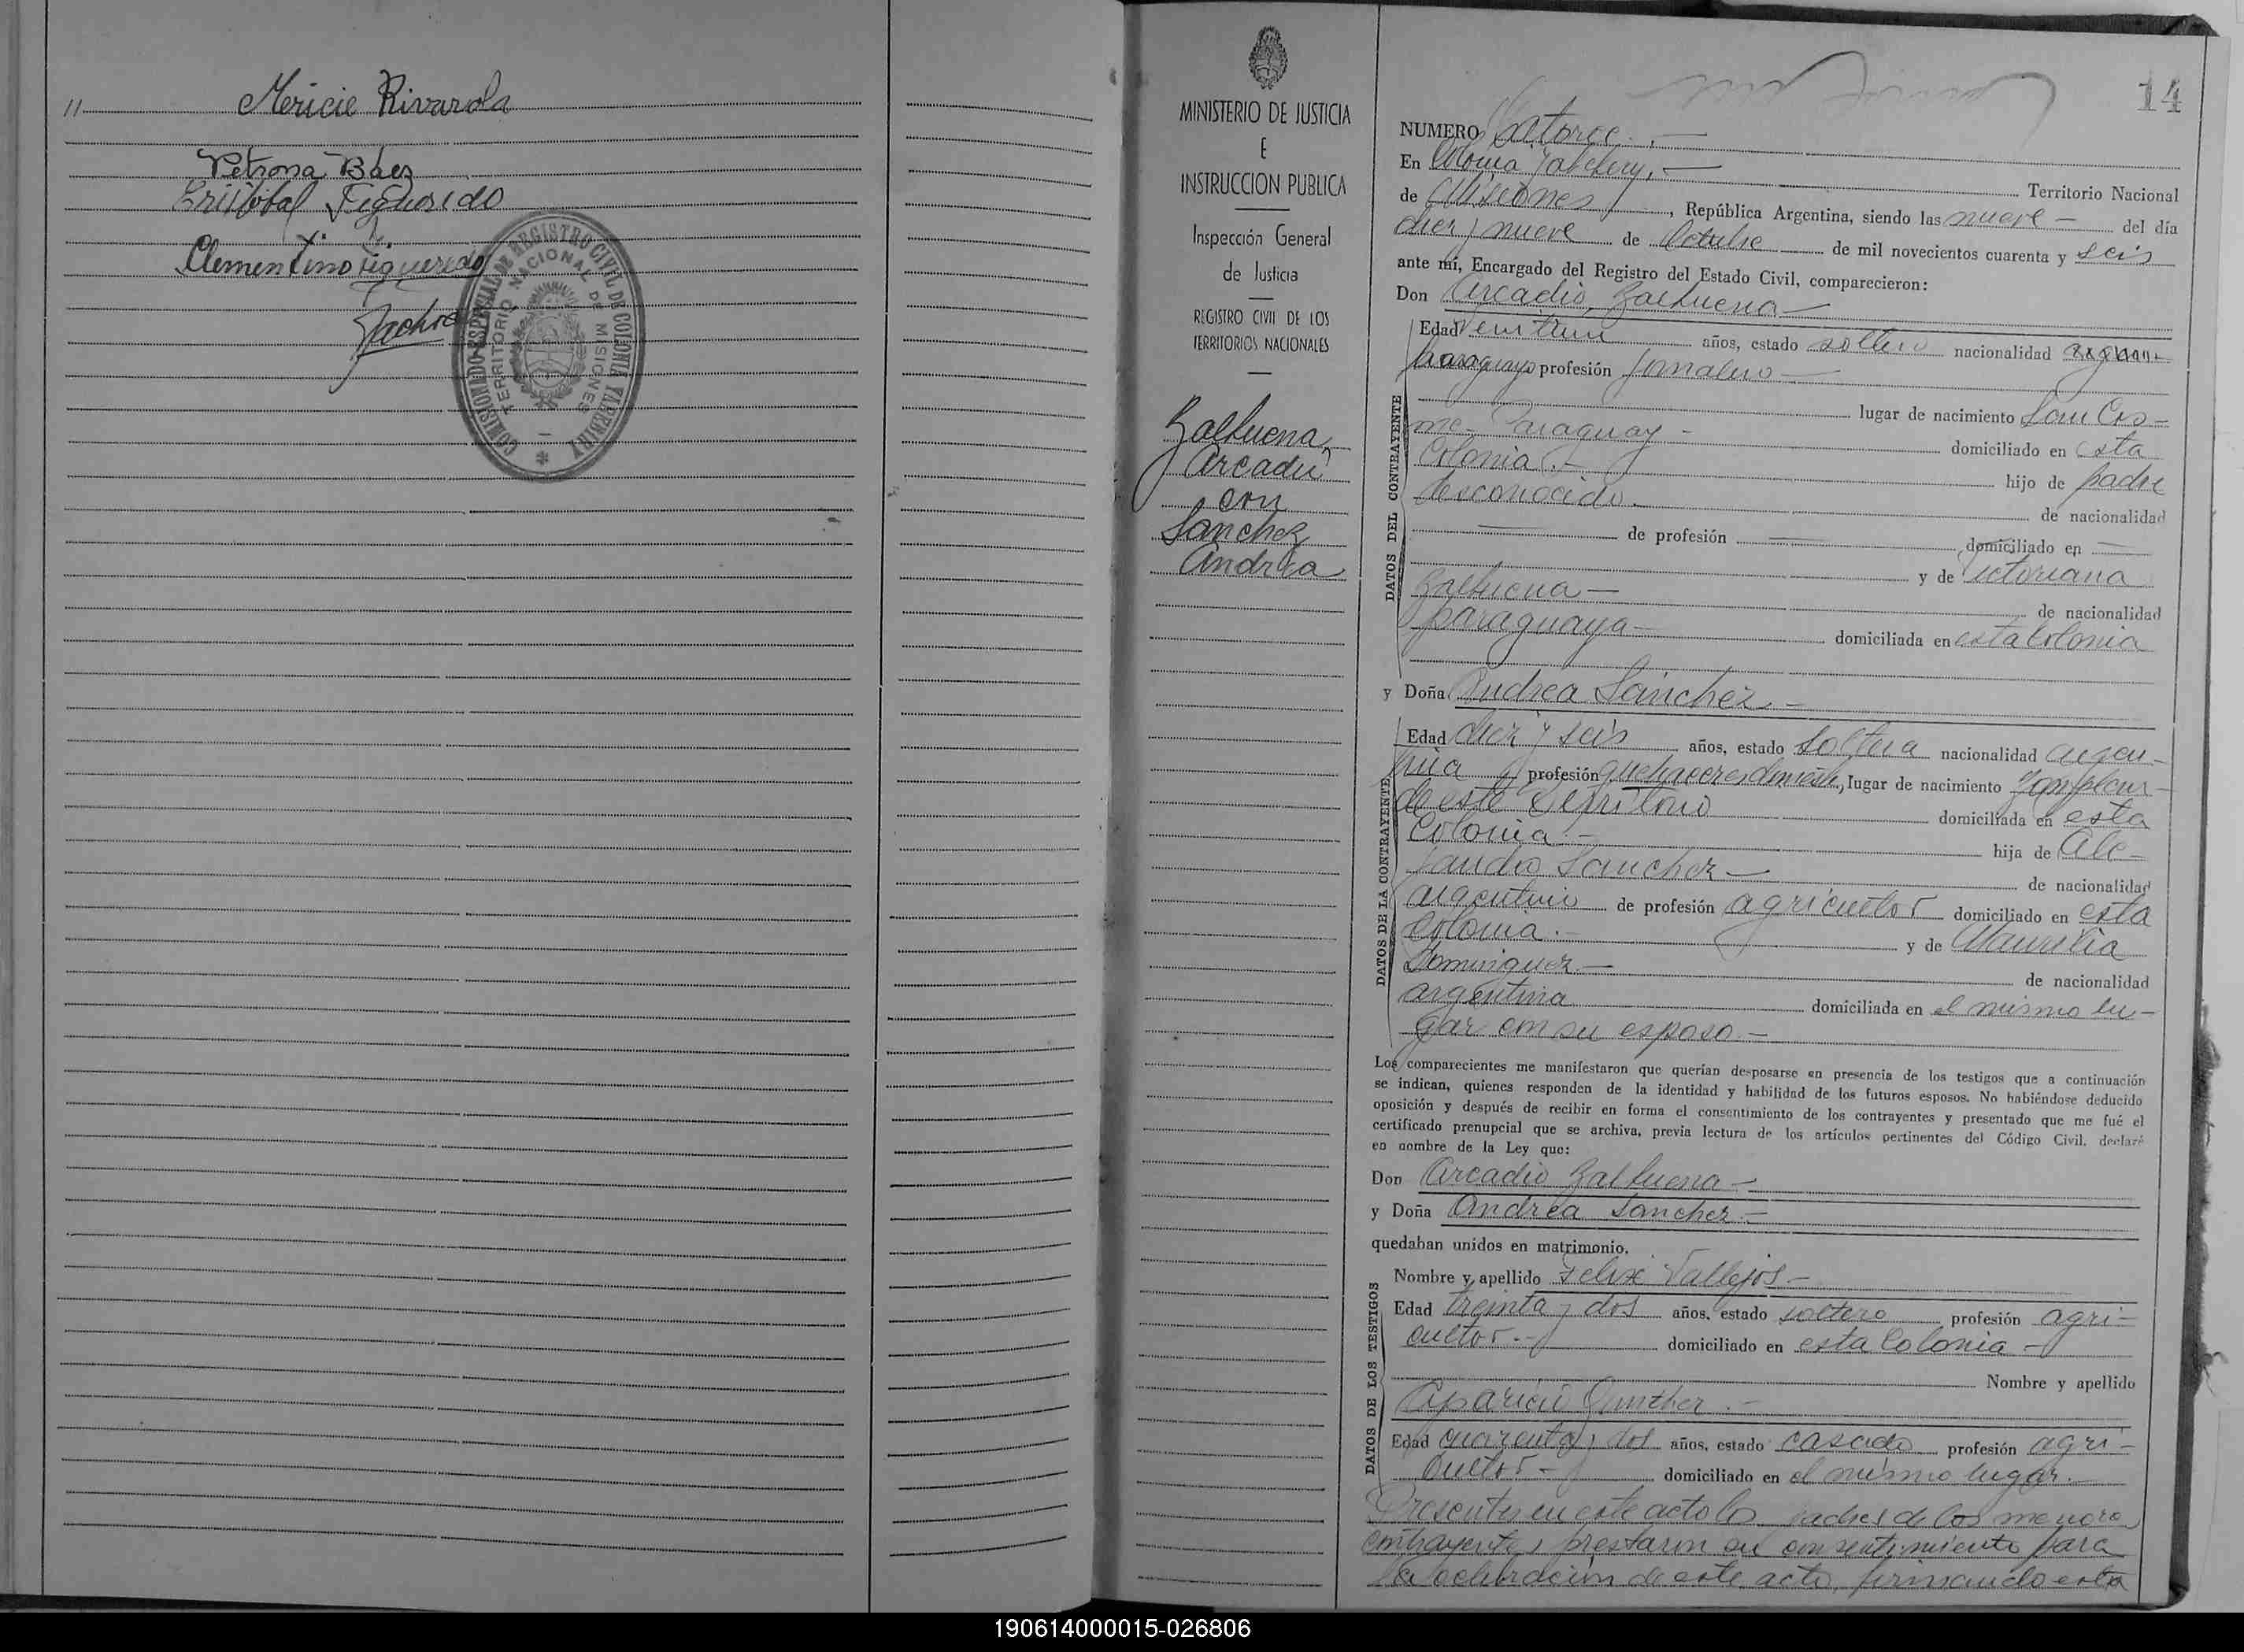 11 Mericie Rivarola
Petrona Báez
Cristobal Figueredo
Clementino Figueredo
COMISIONADO ESPECIAL DE REGISTRO CIVIL DE COLONIA YABEBIRY
TERRITORIO NACIONAL DE MISIONES
MINISTERIO DE JUSTICIA
E
INSTRUCCION PUBLICA
Inspección General
de Justicia
REGISTRO CIVIL DE LOS
TERRITORIOS NACIONALES
Balbuena,
Arcadio
con
Sanchez
Andrea
14
NUMERO Catorce.-
En Colonia Yabebiry,- Territorio Nacional
de Misiones, República Argentina, siendo las nueve - del día
diez y nueve de Octubre de mil novecientos cuarenta y seis
ante mí, Encargado del Registro del Estado Civil, comparecieron:
Don Arcadio Balbuena -
Edad años, estado soltero nacionalidad
paraguayo profesión Jornalero -
lugar de nacimiento San Cos-
me - Paraguay - domiciliado en esta
Colonia.- hijo de padre
desconocido. de nacionalidad
de profesión domiciliado en
y de Victoriana
Balbuena - de nacionalidad
paraguaya - domiciliada en esta Colonia
y Doña Andrea Sanchez.-
Edad diez y seis años, estado soltera nacionalidad argen-
tina profesión quehaceres domést., lugar de nacimiento
de este Territorio domiciliada en esta
Colonia.- hija de Ale-
jandro Sanchez - de nacionalidad
argentino de profesión agricultor domiciliado en esta
Colonia.- y de Maurilia
Dominguez - de nacionalidad
argentina domiciliada en el mismo lu-
gar con su esposo.-
Los comparecientes me manifestaron que querían desposarse en presencia de los testigos que a continuación
se indican, quienes responden de la identidad y habilidad de los futuros esposos. No habiéndose deducido
oposición y después de recibir en forma el consentimiento de los contrayentes y presentado que me fué el
certificado prenupcial que se archiva, previa lectura de los artículos pertinentes del Código Civil, declaré
en nombre de la Ley que:
Don Arcadio Balbuena -
y Doña Andrea Sanchez -
quedaban unidos en matrimonio.
Nombre y apellido Felix Vallejos -
Edad treinta y dos años, estado soltero profesión agri-
cultor.- domiciliado en esta Colonia -
Nombre y apellido
Aparicio Gunther.-
Edad cuarenta y dos años, estado casado profesión agri-
cultor - domiciliado en el mismo lugar.-
Presentes en este acto los padres de los menores
contrayentes, prestaron su consentimiento para
la celebración de este acto, firmando esta
DATOS DEL CONTRAYENTE
DATOS DE LA CONTRAYENTE
DATOS DE LOS TESTIGOS
190614000015-026806